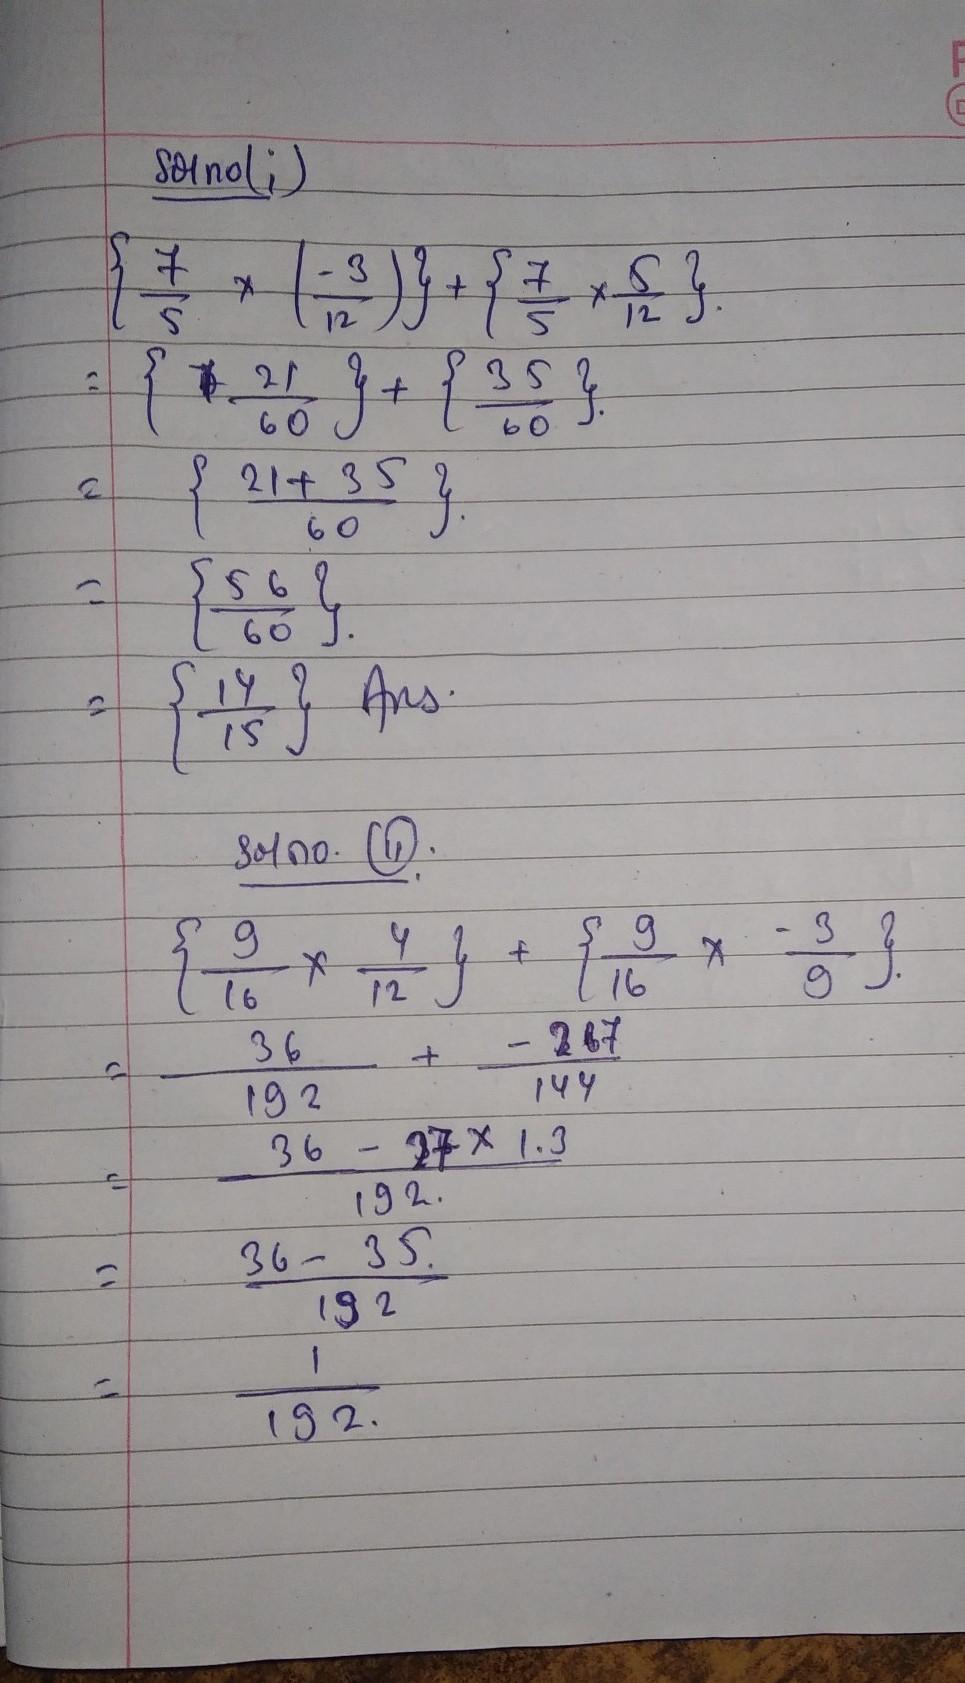 Solno(i)
{7/5 × (-3/12)} + {7/5 × 5/12}.
= {21/60} + {35/60}.
= {21+35/60}.
= {56/60}.
= {14/15} Ans.
Solno. (ii).
{9/16 × 4/12} + {9/16 × -3/9}.
= 36/192 + -27/144
= 36 - 27 × 1.3/192.
= 36 - 35./192
= 1/192.